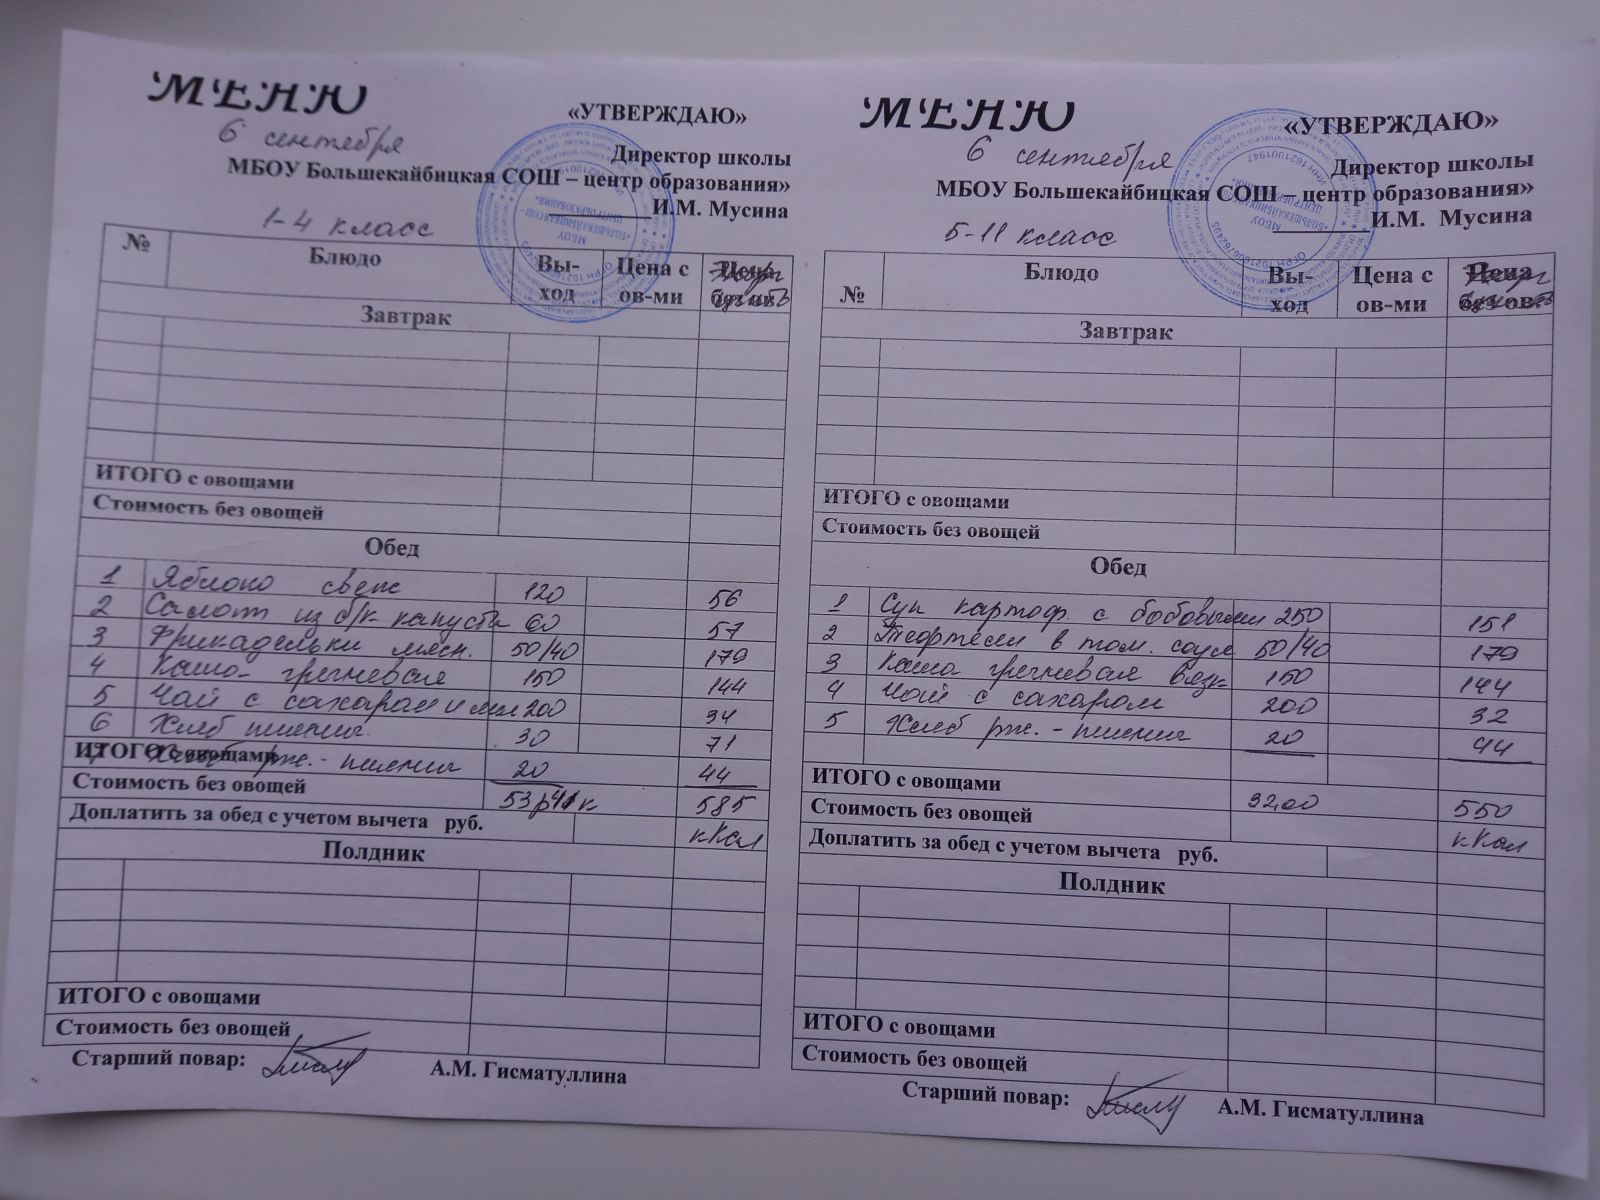 МЕНЮ
6 сентября
«УТВЕРЖДАЮ»
Директор школы
МБОУ Большекайбицкая СОШ – центр образования»
И.М. Мусина
1-4 класс
№ Блюдо Вы-ход Цена с ов-ми
Завтрак
ИТОГО с овощами
Стоимость без овощей
Обед
1 Яблоко свеж 120 56
2 Салат из б/к капусты 60 57
3 Фрикадельки мясн. 50/40 179
4 Каша гречневая 150 144
5 Чай с сахаром и 200 34
6 Хлеб пшенич. 30 71
ИТОГО с овощами
7 Хлеб рж. - пшенич 20 44
Стоимость без овощей 585
Доплатить за обед с учетом вычета руб. кКал
Полдник
ИТОГО с овощами
Стоимость без овощей
Старший повар: А.М. Гисматуллина
МЕНЮ
6 сентября
«УТВЕРЖДАЮ»
Директор школы
МБОУ Большекайбицкая СОШ – центр образования»
И.М. Мусина
5-11 класс
№ Блюдо Вы-ход Цена с ов-ми
Завтрак
ИТОГО с овощами
Стоимость без овощей
Обед
1 Суп картоф. с бобовыми 250 151
2 Тефтели в том. соусе 50/40 179
3 Каша гречневая вязк 150 144
4 Чай с сахаром 200 32
5 Хлеб рж. - пшенич 20 44
ИТОГО с овощами
Стоимость без овощей 32,00 550
Доплатить за обед с учетом вычета руб. кКал
Полдник
ИТОГО с овощами
Стоимость без овощей
Старший повар: А.М. Гисматуллина